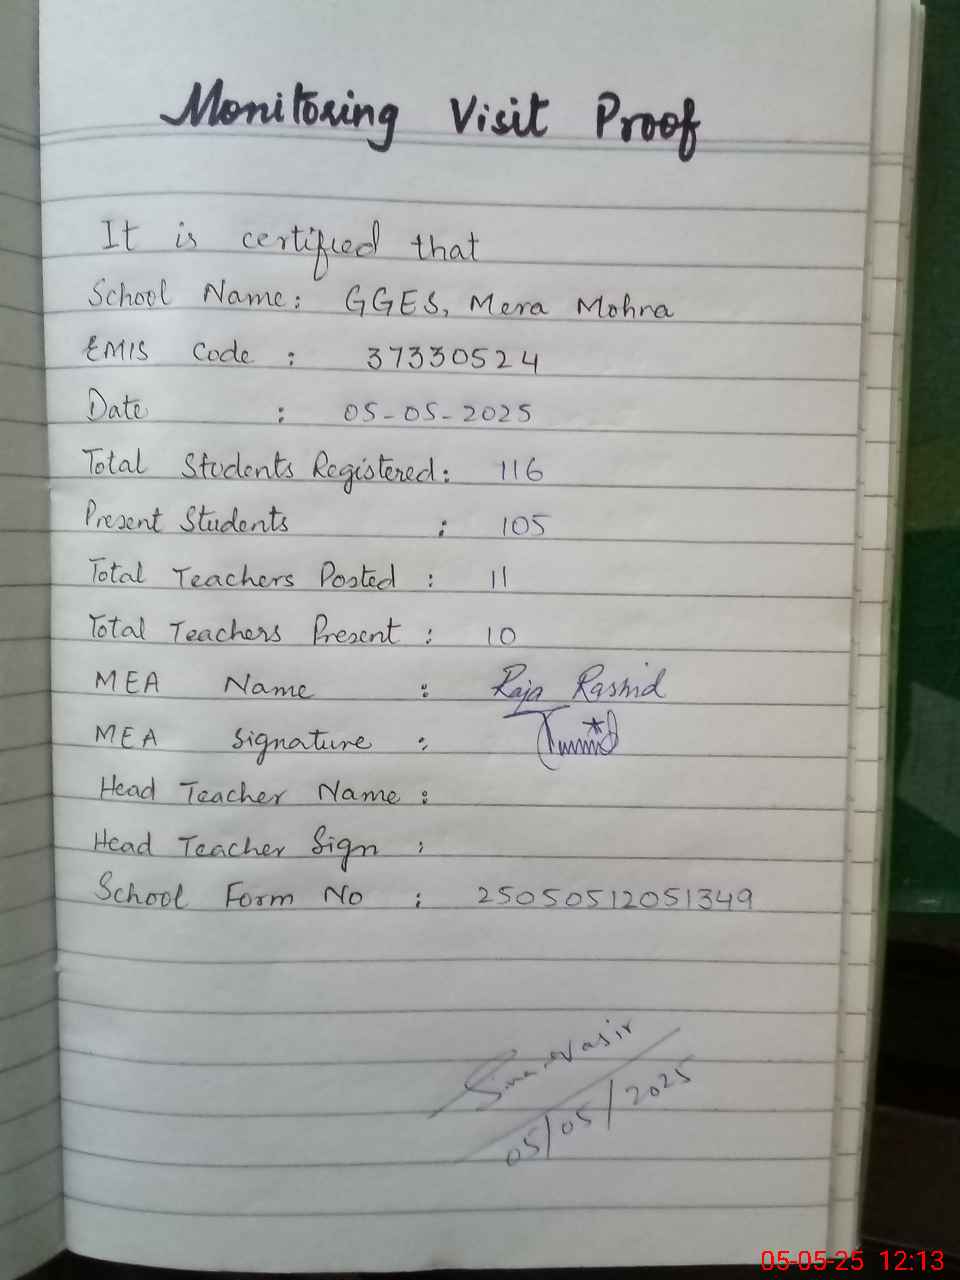 Monitoring Visit Proof
It is certified that
School Name: GGES, Mera Mohra
EMIS Code : 37330524
Date : 05-05-2025
Total Students Registered: 116
Present Students : 105
Total Teachers Posted : 11
Total Teachers Present : 10
MEA Name : Raja Rashid
MEA Signature :
Head Teacher Name :
Head Teacher Sign :
School Form No : 25050512051349
05/05/2025
05-05-25 12:13